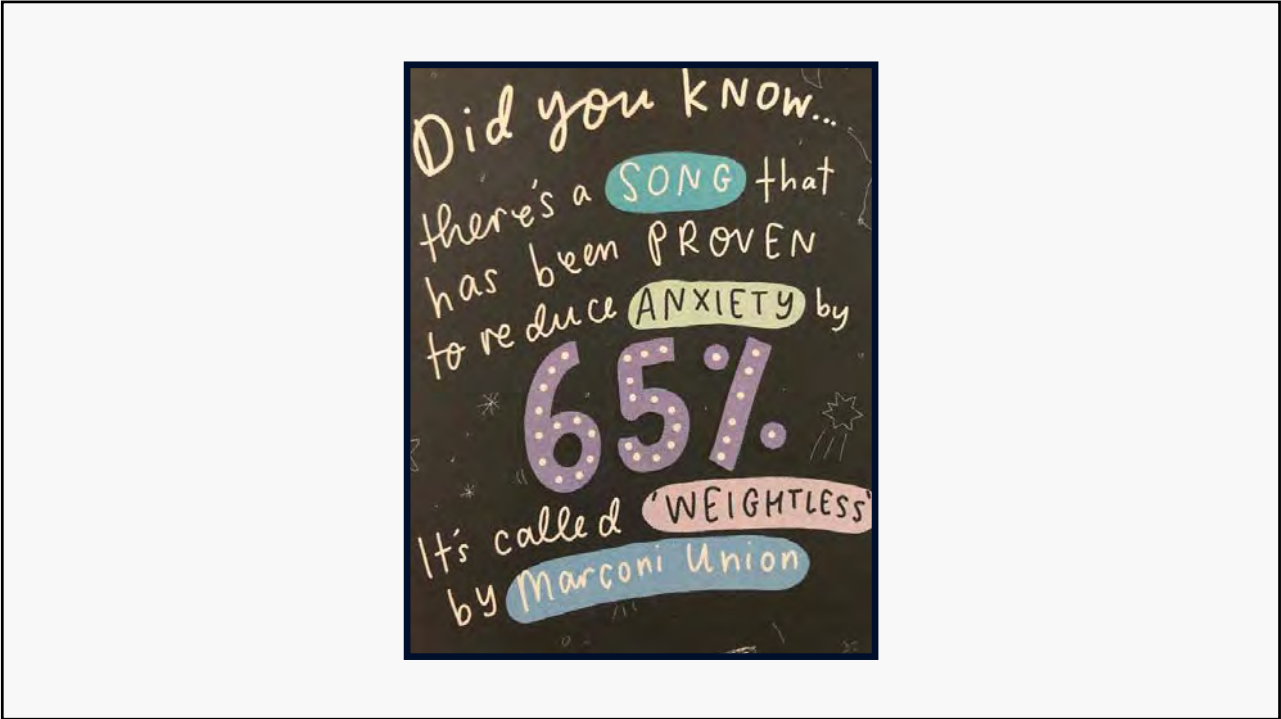 Did you know...
there's a SONG that
has been PROVEN
to reduce ANXIETY by
65%
It's called 'WEIGHTLESS'
by Marconi Union